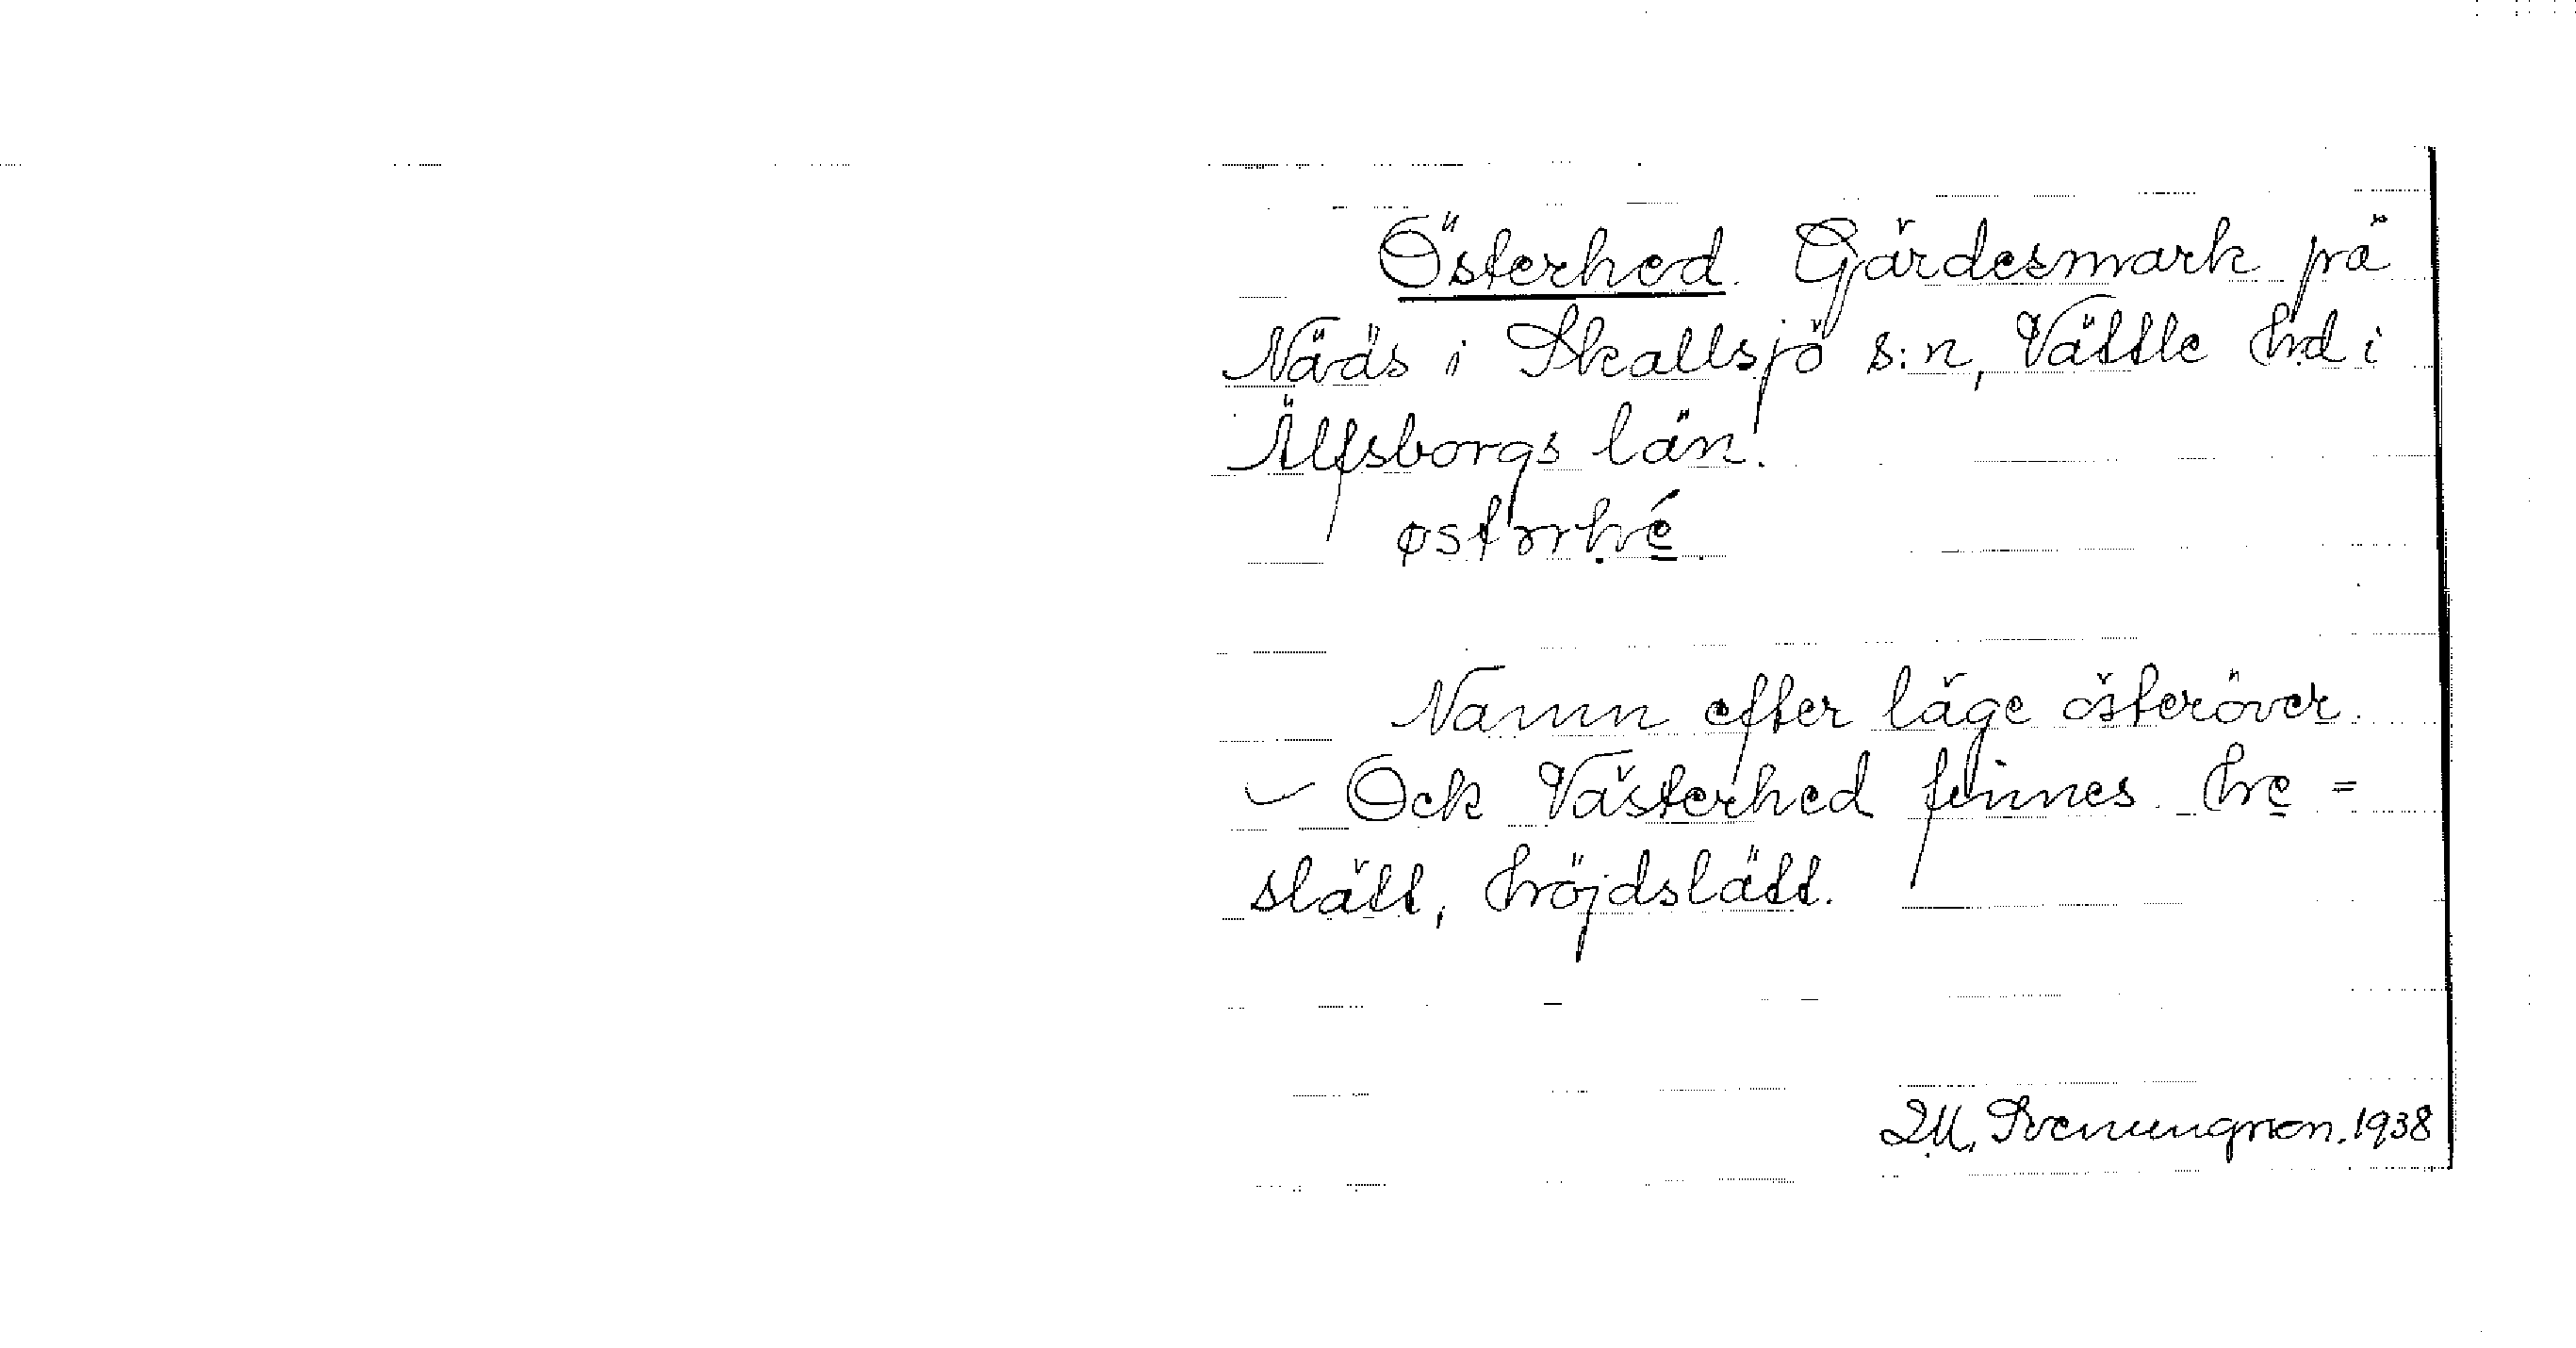 Österhed. Gärdesmark på
Nääs i Skallsjö s:n, Vättle hd i
Älfsborgs län.
østrrhé.
Namn efter läge österöver.
Ock Västerhed finnes. he =
slätt, höjdslätt.
Svenungsson. 1938